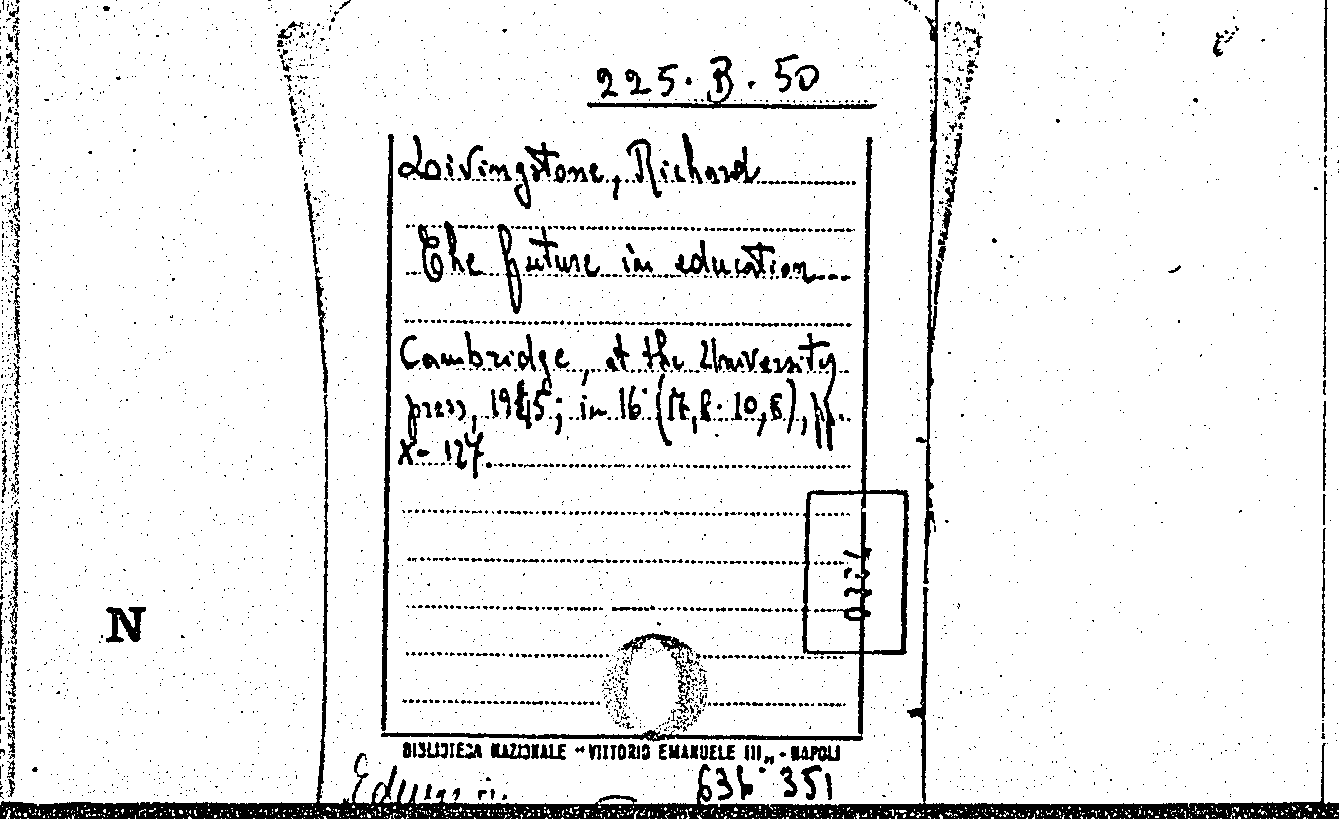 225. B. 50
Livingstone, Richard
The future in education...
Cambridge, at the University
press, 1945; in 16° (17,8 · 10,8), pp.
X- 127.
N
BIBLIOTECA NAZIONALE “VITTORIO EMANUELE III„ - NAPOLI
351